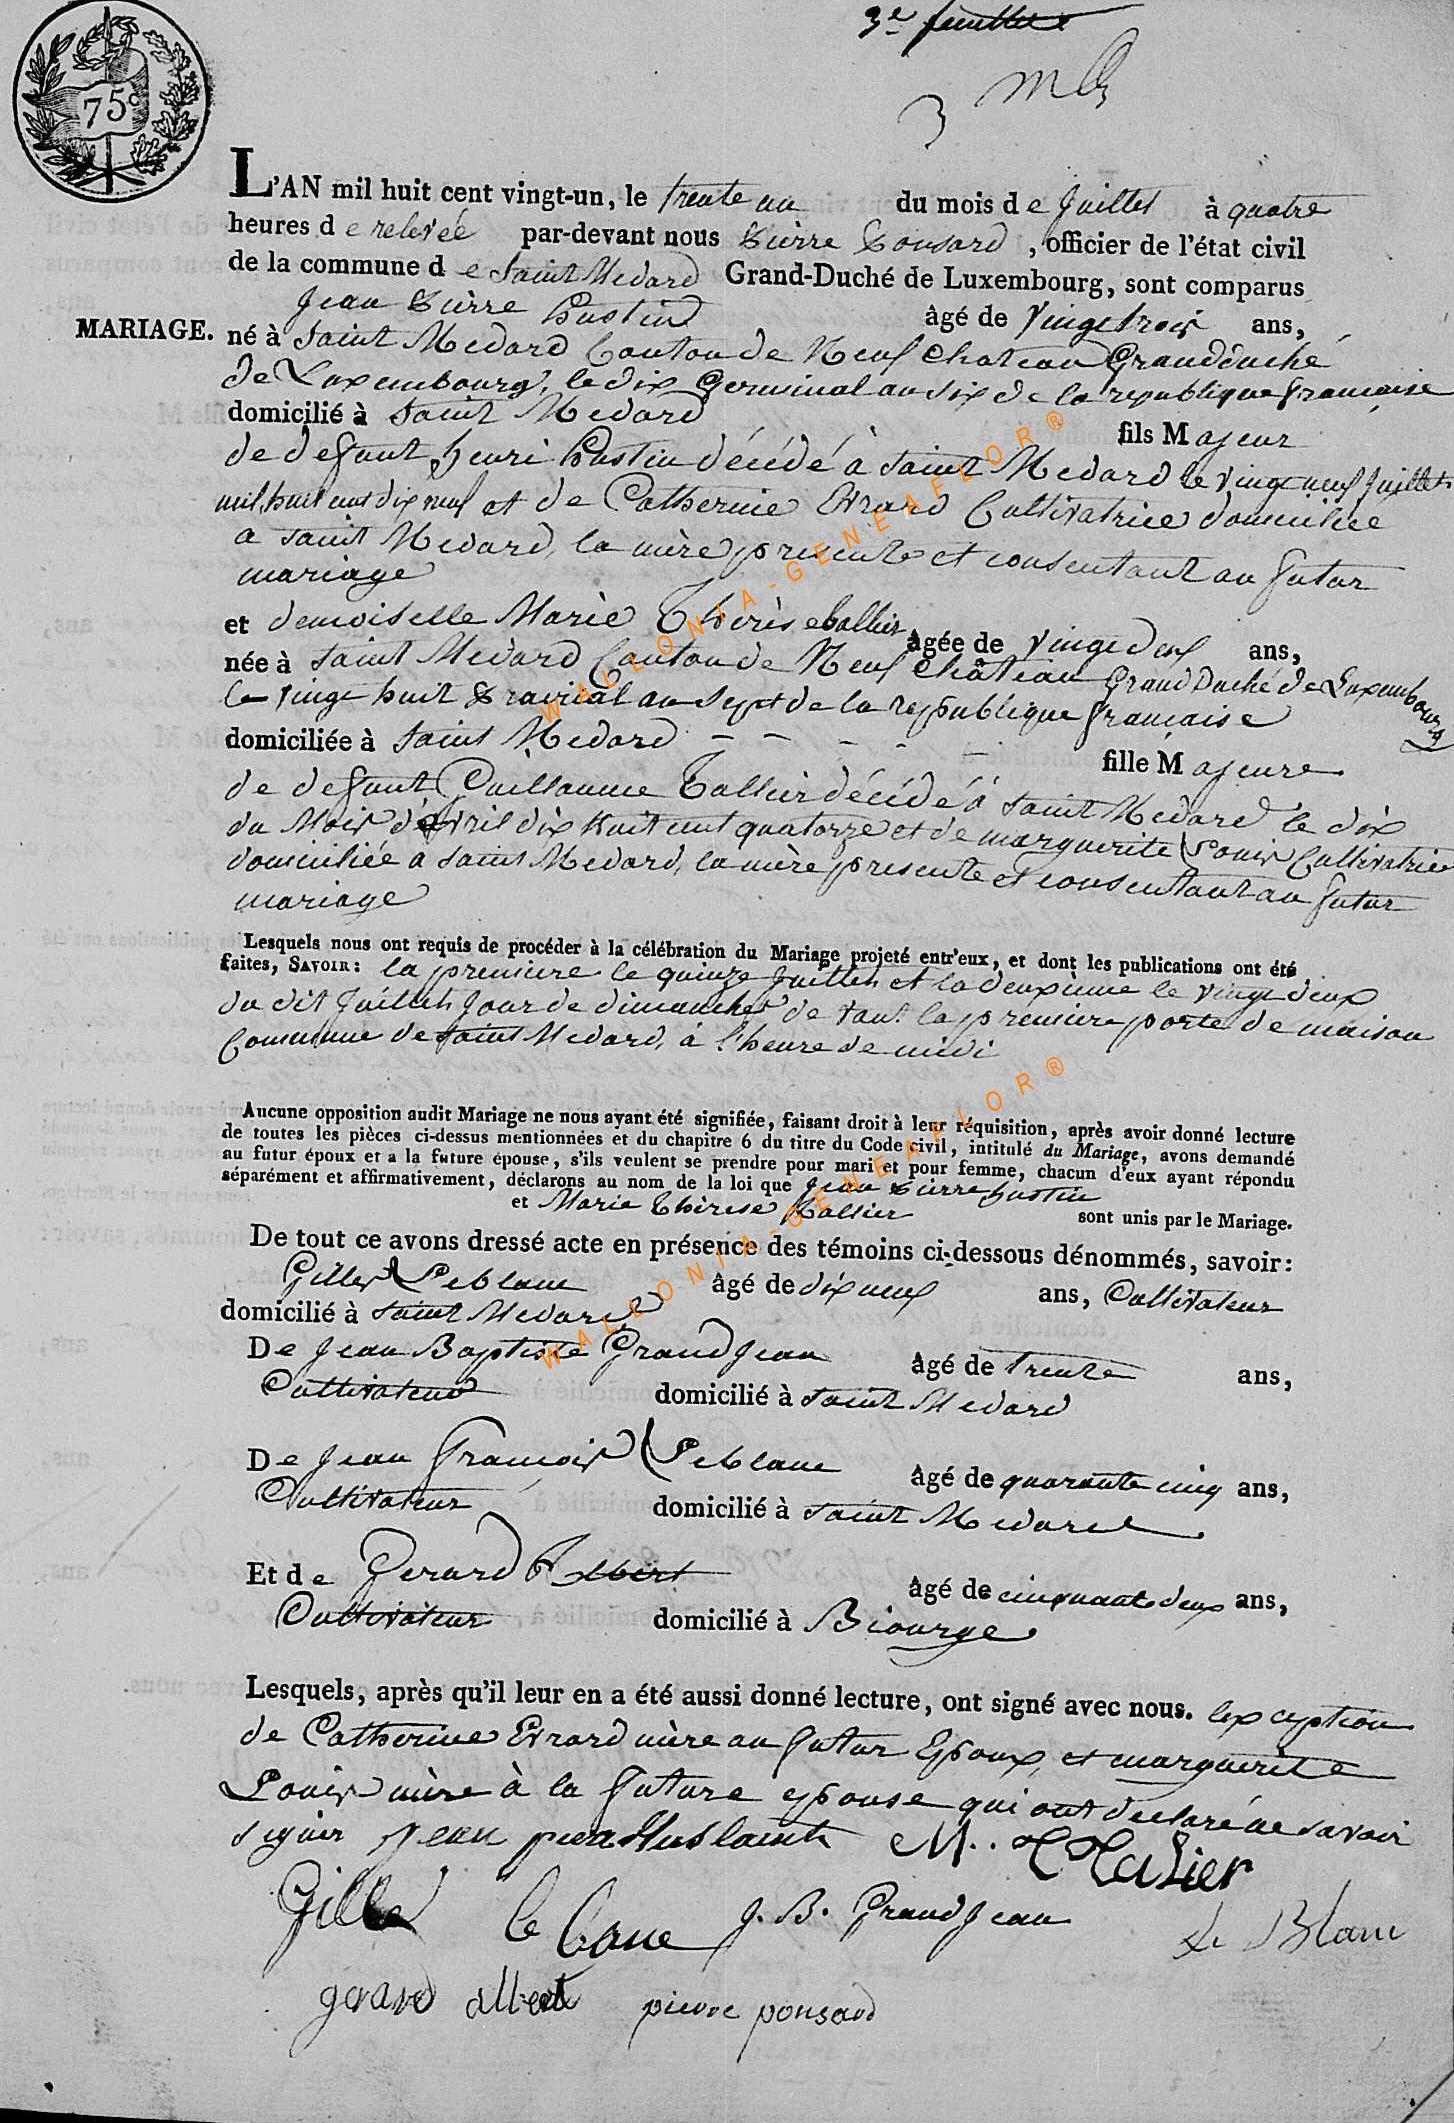 3e feuillet
75c
L'AN mil huit cent vingt-un, le trente un du mois de Juillet à quatre
heures de relevée par-devant nous Pierre Ponsard, officier de l'état civil
de la commune de Saint Medard Grand-Duché de Luxembourg, sont comparus
Jean Pierre Hustin âgé de Vingt trois ans,
MARIAGE. né à Saint Medard Canton de Neuf Chateau Grand duché
de Luxembourg, le dix Germinal an six de la republique française
domicilié à Saint Medard fils Majeur
de defunt henri Hustin décédé à Saint Medard le vingt neuf Juillet
mil huit cent dix neuf et de Catherine Evrard Cultivatrice domiciliée
a Saint Medard, la mère presente et consentant au futur
mariage
et demoiselle Marie Thérèse Tallier âgée de vingt deux ans,
née à Saint Medard Canton de Neuf Château Grand Duché de Luxembourg
le vingt huit Prairial an sept de la republique française
domiciliée à Saint Medard - - - - - fille Majeure
de defunt Guillaume Tallier décédé à Saint Medard le dix
du Mois d'avril dix huit cent quatorze et de marguerite Louis Cultivatrice
domiciliée a Saint Medard, la mère presente et consentant au futur
mariage
Lesquels nous ont requis de procéder à la célébration du Mariage projeté entr'eux, et dont les publications ont été
faites, SAVOIR: la premiere le quinze Juillet et la deuxieme le vingt deux
du dit Juillet Jour de dimanche de vant la premiere porte de maison
Commune de Saint Medard, à l'heure de midi
Aucune opposition audit Mariage ne nous ayant été signifiée, faisant droit à leur réquisition, après avoir donné lecture
de toutes les pièces ci-dessus mentionnées et du chapitre 6 du titre du Code civil, intitulé du Mariage, avons demandé
au futur époux et a la future épouse, s'ils veulent se prendre pour mari et pour femme, chacun d'eux ayant répondu
séparément et affirmativement, déclarons au nom de la loi que Jean Pierre hustin
et Marie Thérese Tallier sont unis par le Mariage.
De tout ce avons dressé acte en présence des témoins ci-dessous dénommés, savoir:
Gilles Leblanc âgé de dix neuf ans, Cultivateur
domicilié à Saint Medard
De Jean Baptiste Grand Jean âgé de trente ans,
Cultivateur domicilié à Saint Medard
De Jean François Leblanc âgé de quarante cinq ans,
Cultivateur domicilié à Saint Medard
Et de Gerard Albert âgé de cinquante deux ans,
Cultivateur domicilié à Biourge
Lesquels, après qu'il leur en a été aussi donné lecture, ont signé avec nous. lexception
de Catherine Evrard mère au futur Epoux, et marguerite
Louis mère à la future epouse qui ont declaré ne savoir
signer Jean pierre M. T Talier
Gille le blanc J. B. Grand Jean Le Blanc
gerard albert pierre ponsard
WALLONIA-GENEAFLOR®
WALLONIA-GENEAFLOR®